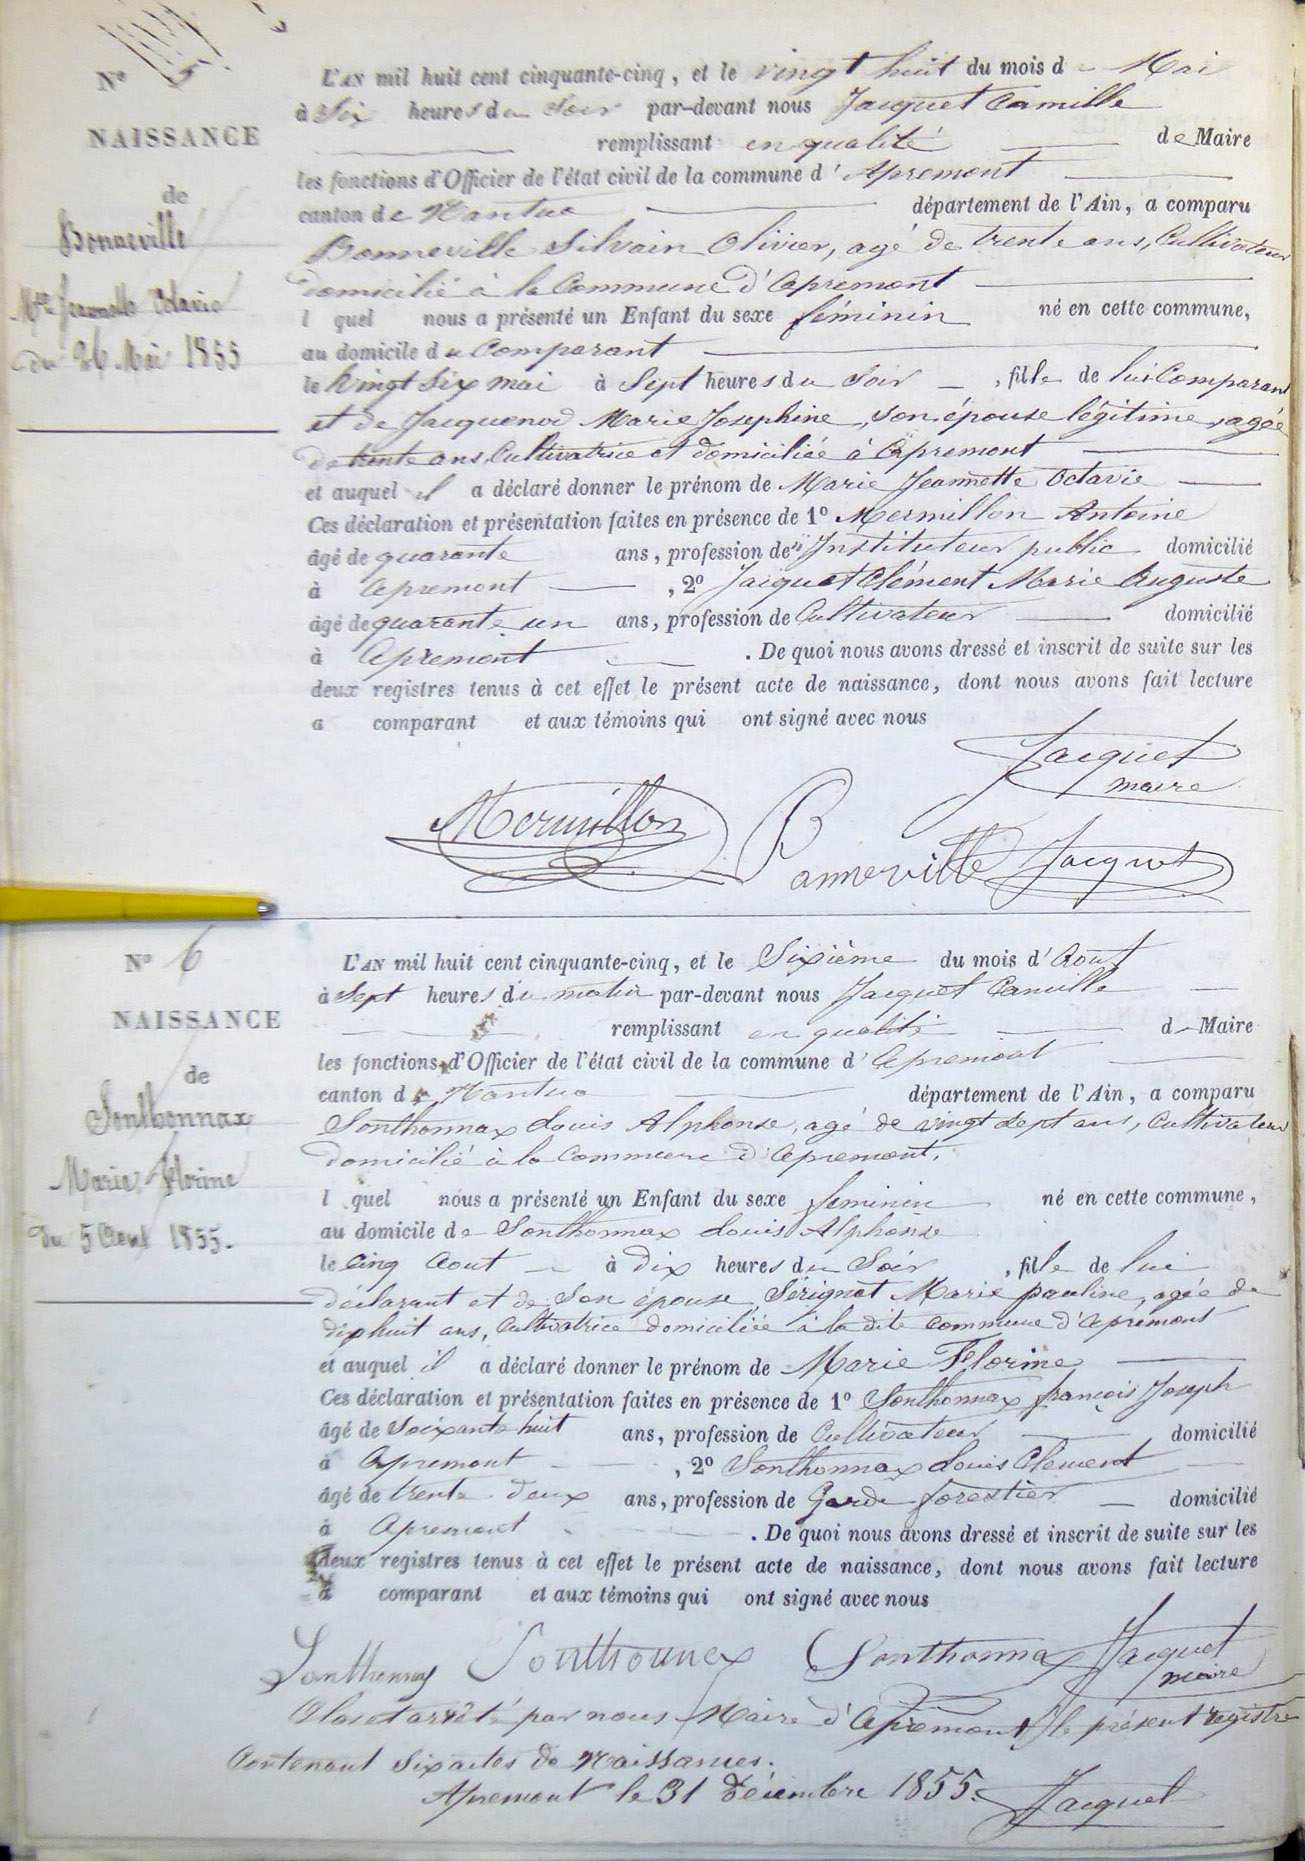 N° 5
NAISSANCE
de
Bonneville
Mie Jeannette Octavie
du 26 Mai 1855
L'AN mil huit cent cinquante-cinq, et le vingt huit du mois de Mai
à Six heures du Soir par-devant nous Jacquet Camille
remplissant en qualité de Maire
les fonctions d'Officier de l'état civil de la commune d'Apremont
canton de Nantua département de l'Ain, a comparu
Bonneville Silvain Olivier, agé de trente ans, Cultivateur
domicilié à la Commune d'Apremont
l quel nous a présenté un Enfant du sexe féminin né en cette commune,
au domicile du Comparant
le Vingt Six mai à Sept heures du Soir, fille de lui Comparant
et de Jacquenod Marie Josephine, son épouse légitime, agée
de trente ans, Cultivatrice et domiciliée à Apremont
et auquel il a déclaré donner le prénom de Marie Jeannette Octavie
Ces déclaration et présentation faites en présence de 1° Mermillon Antoine
âgé de quarante ans, profession de Instituteur public domicilié
à Apremont, 2° Jacquet Clément Marie Auguste
âgé de quarante un ans, profession de Cultivateur domicilié
à Apremont. De quoi nous avons dressé et inscrit de suite sur les
deux registres tenus à cet effet le présent acte de naissance, dont nous avons fait lecture
a comparant et aux témoins qui ont signé avec nous
Jacquet
maire
Mermillon Bonneville Jacquet
N° 6
NAISSANCE
de
Sonthonnax
Marie Florine
du 5 Aout 1855.
L'AN mil huit cent cinquante-cinq, et le Sixième du mois d'Aout
à Sept heures du matin par-devant nous Jacquet Camille
remplissant en qualité de Maire
les fonctions d'Officier de l'état civil de la commune d'Apremont
canton de Nantua département de l'Ain, a comparu
Sonthonnax Louis Alphonse, agé de vingt sept ans, Cultivateur
domicilié à la Commune d'Apremont,
l quel nous a présenté un Enfant du sexe feminin né en cette commune,
au domicile de Sonthonnax Louis Alphonse
le Cinq Aout à dix heures du Soir, fille de lui
déclarant et de Son épouse Sérignat Marie pauline, agée de
dix huit ans, Cultivatrice domiciliée à la dite commune d'Apremont
et auquel il a déclaré donner le prénom de Marie Florine
Ces déclaration et présentation faites en présence de 1° Sonthonnax françois Joseph
âgé de Soixante huit ans, profession de Cultivateur domicilié
à Apremont, 2° Sonthonnax Louis Clément
âgé de trente deux ans, profession de Garde forestier domicilié
à Apremont. De quoi nous avons dressé et inscrit de suite sur les
deux registres tenus à cet effet le présent acte de naissance, dont nous avons fait lecture
a comparant et aux témoins qui ont signé avec nous
Sonthonnax Sonthonnax Sonthonnax Jacquet
maire
Clos et arrêté par nous Maire d'Apremont, le présent registre
Contenant Six actes de Naissances.
Apremont le 31 Décembre 1855.
Jacquet